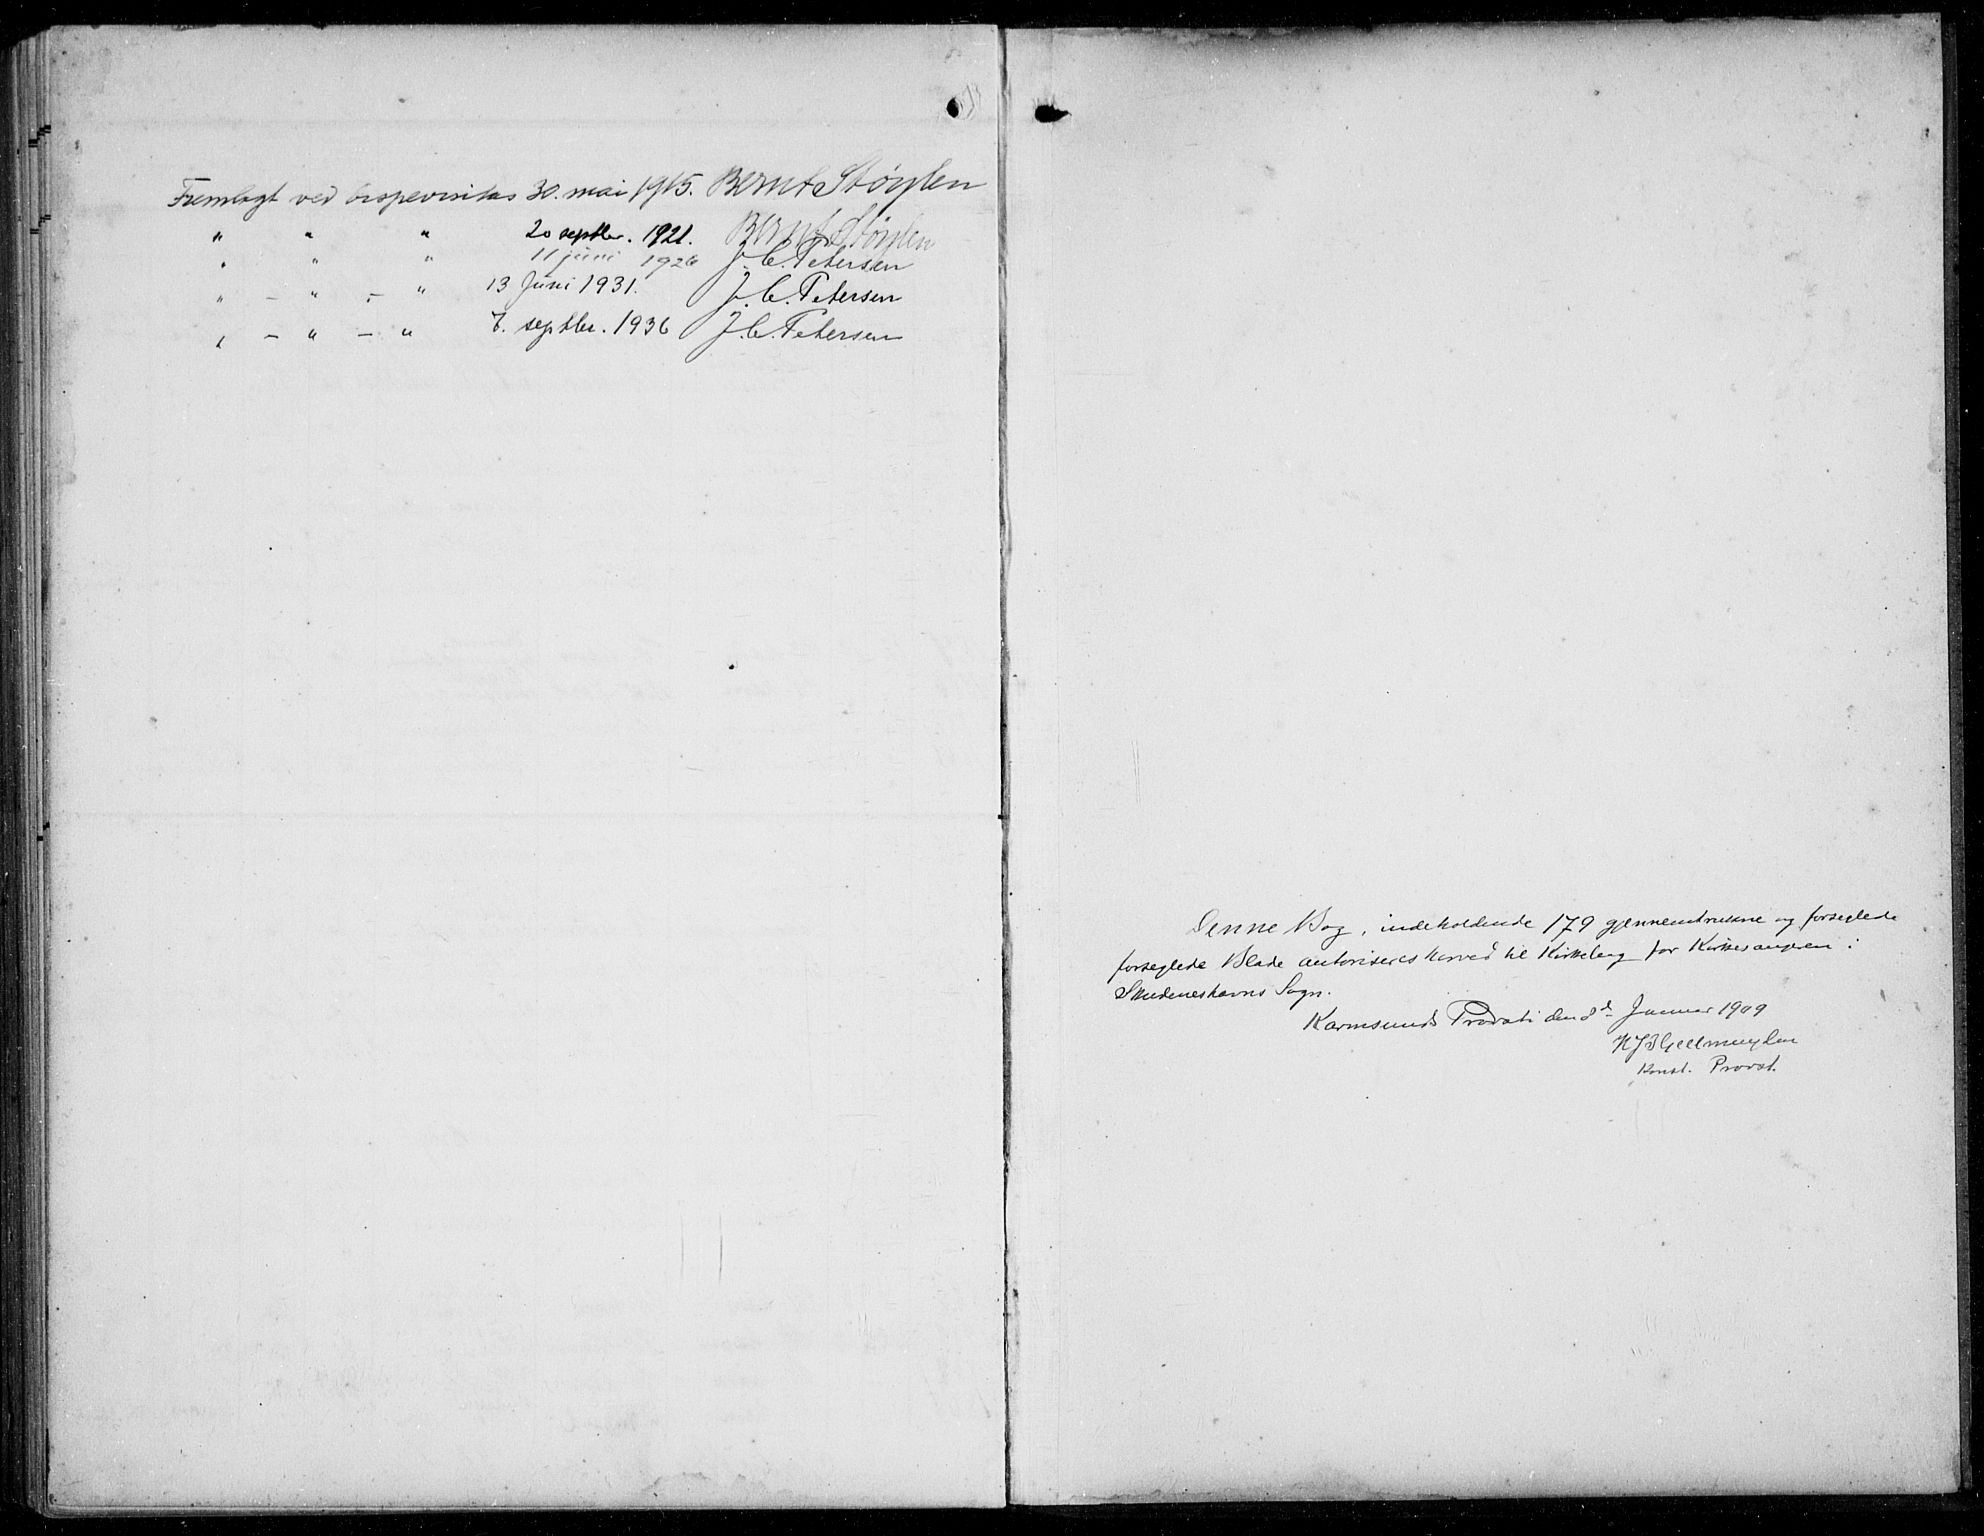 Fremlagt ved bispevisitas 30. mai 1915. Bernt Støylen
" " " 20 septbr. 1921. Bernt Støylen
" " " 11 juni 1926 J. C. Petersen
" – " – " 13 Juni 1931. J. C. Petersen
" – " – " 7. septbr. 1936 J. C. Petersen
Denne Bog, indeholdende 179 gjennemtrukne og forseglede
forseglede Blade autoriseres herved til Kirkebog for Kirkesangeren i
Skudeneshavns Sogn.
Karmsunds Provsti den 8d Januar 1909
Gellmuyden
Konst. Provst.